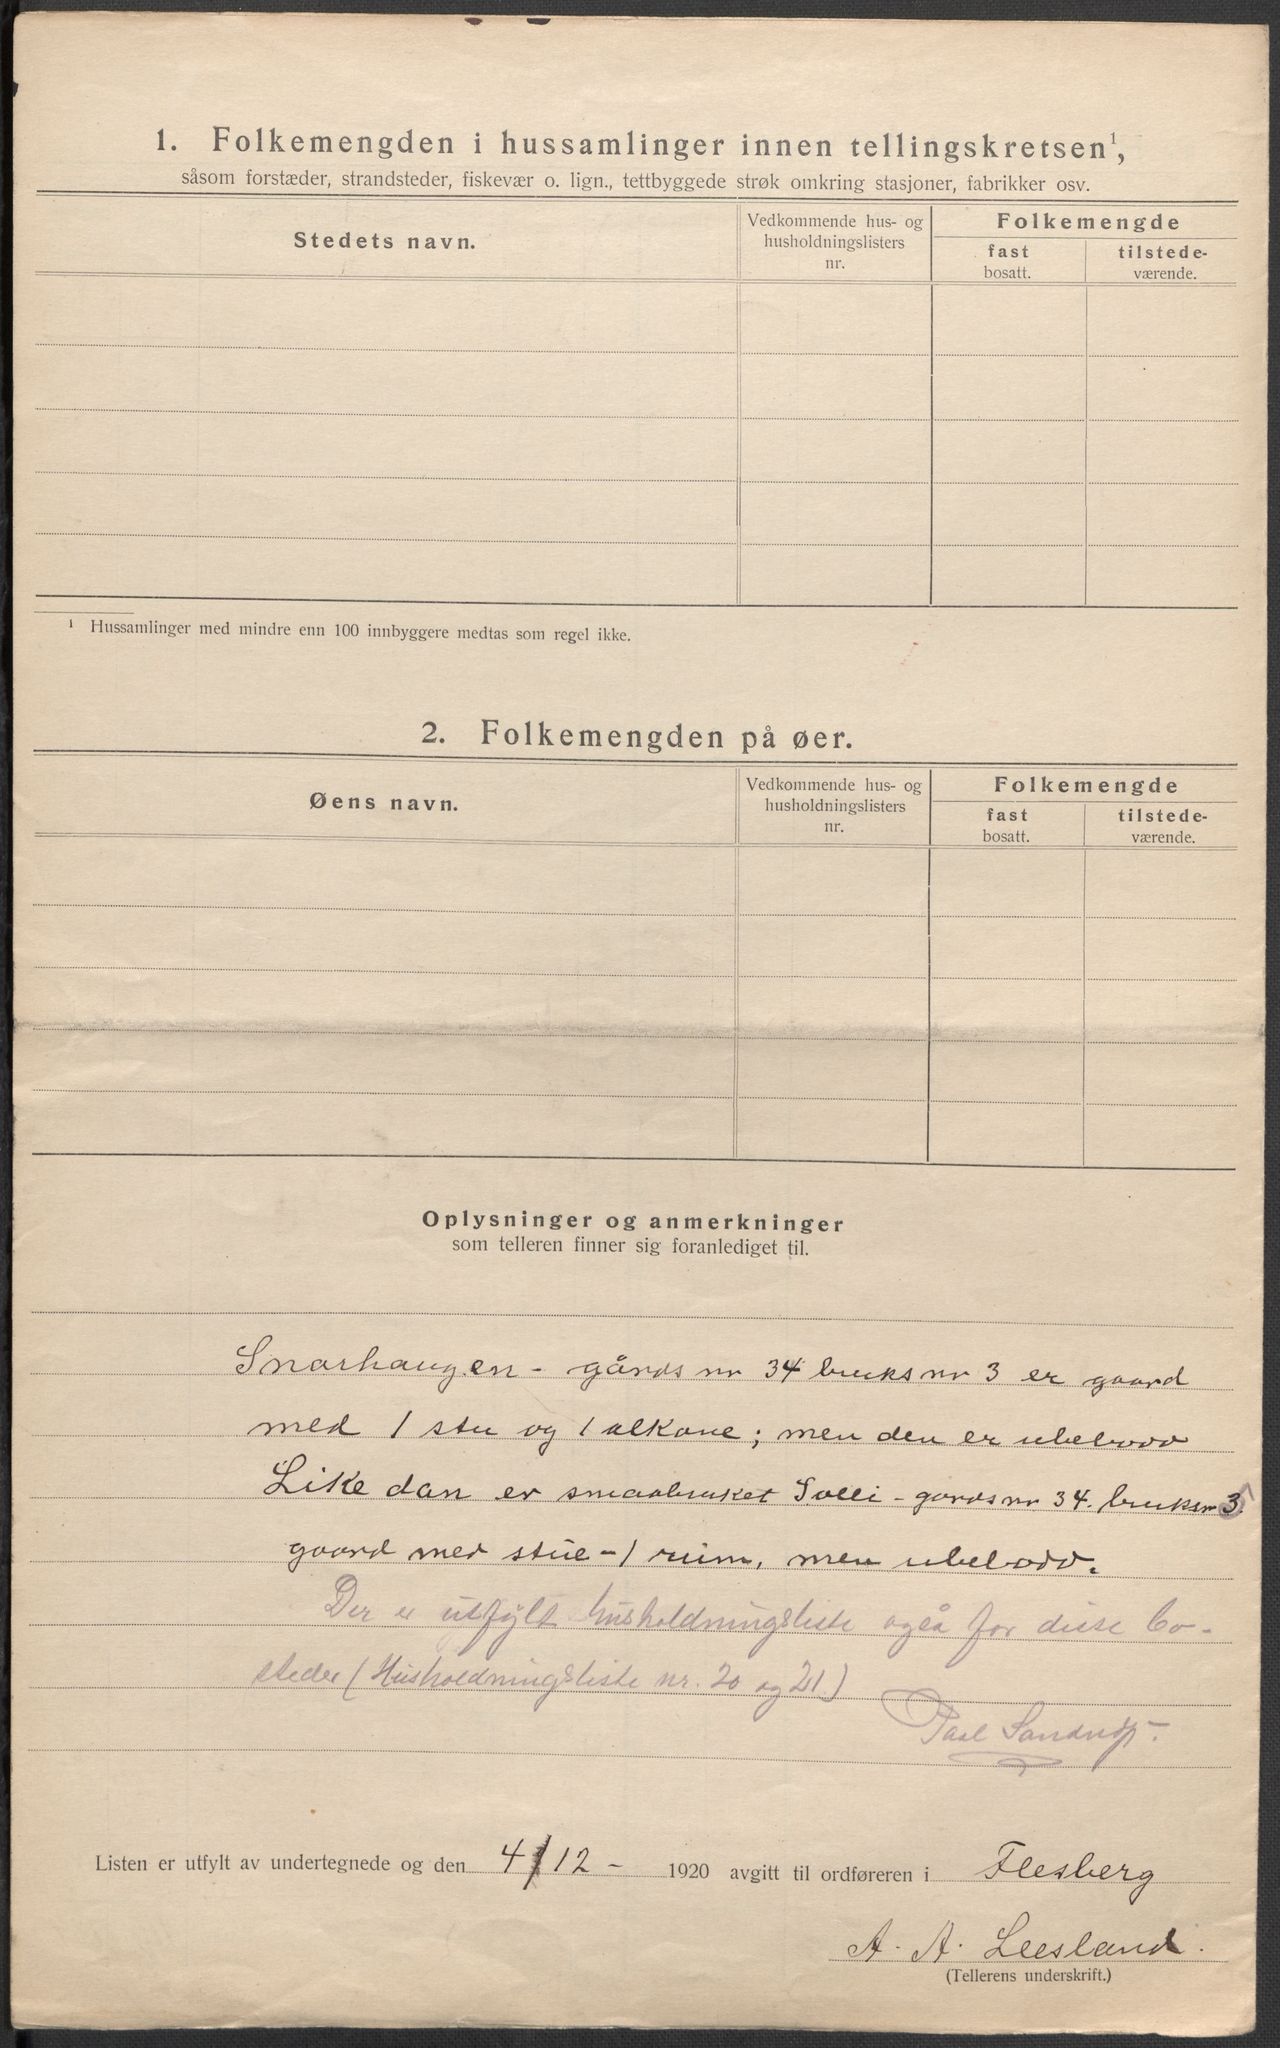 1. Folkemengden i hussamlinger innen tellingskretsen¹,
såsom forstæder, strandsteder, fiskevær o. lign., tettbyggede strøk omkring stasjoner, fabrikker osv.
Stedets navn.
Vedkommende hus- og
husholdningslisters
nr.
Folkemengde
fast
bosatt.
tilstede-
værende.
¹ Hussamlinger med mindre enn 100 innbyggere medtas som regel ikke.
2. Folkemengden på øer.
Øens navn.
Vedkommende hus- og
husholdningslisters
nr.
Folkemengde
fast
bosatt.
tilstede-
værende.
Oplysninger og anmerkninger
som telleren finner sig foranlediget til.
Snarhaugen - gårds nr 34 bruks nr 3 er gaard
med 1 stu og 1 alkove; men den er ubebodd
Like dan er smaabruket Solli - gards nr 34. bruksnr 3.
gaard med stue - 1 rum, men ubebodd.
Der er utfylt husholdningsliste også for disse bo-
steder (Husholdningsliste nr. 20 og 21.)
Paal
Listen er utfylt av undertegnede og den 4/12 - 1920 avgitt til ordføreren i Flesberg
A. A. Leesland.
(Tellerens underskrift.)